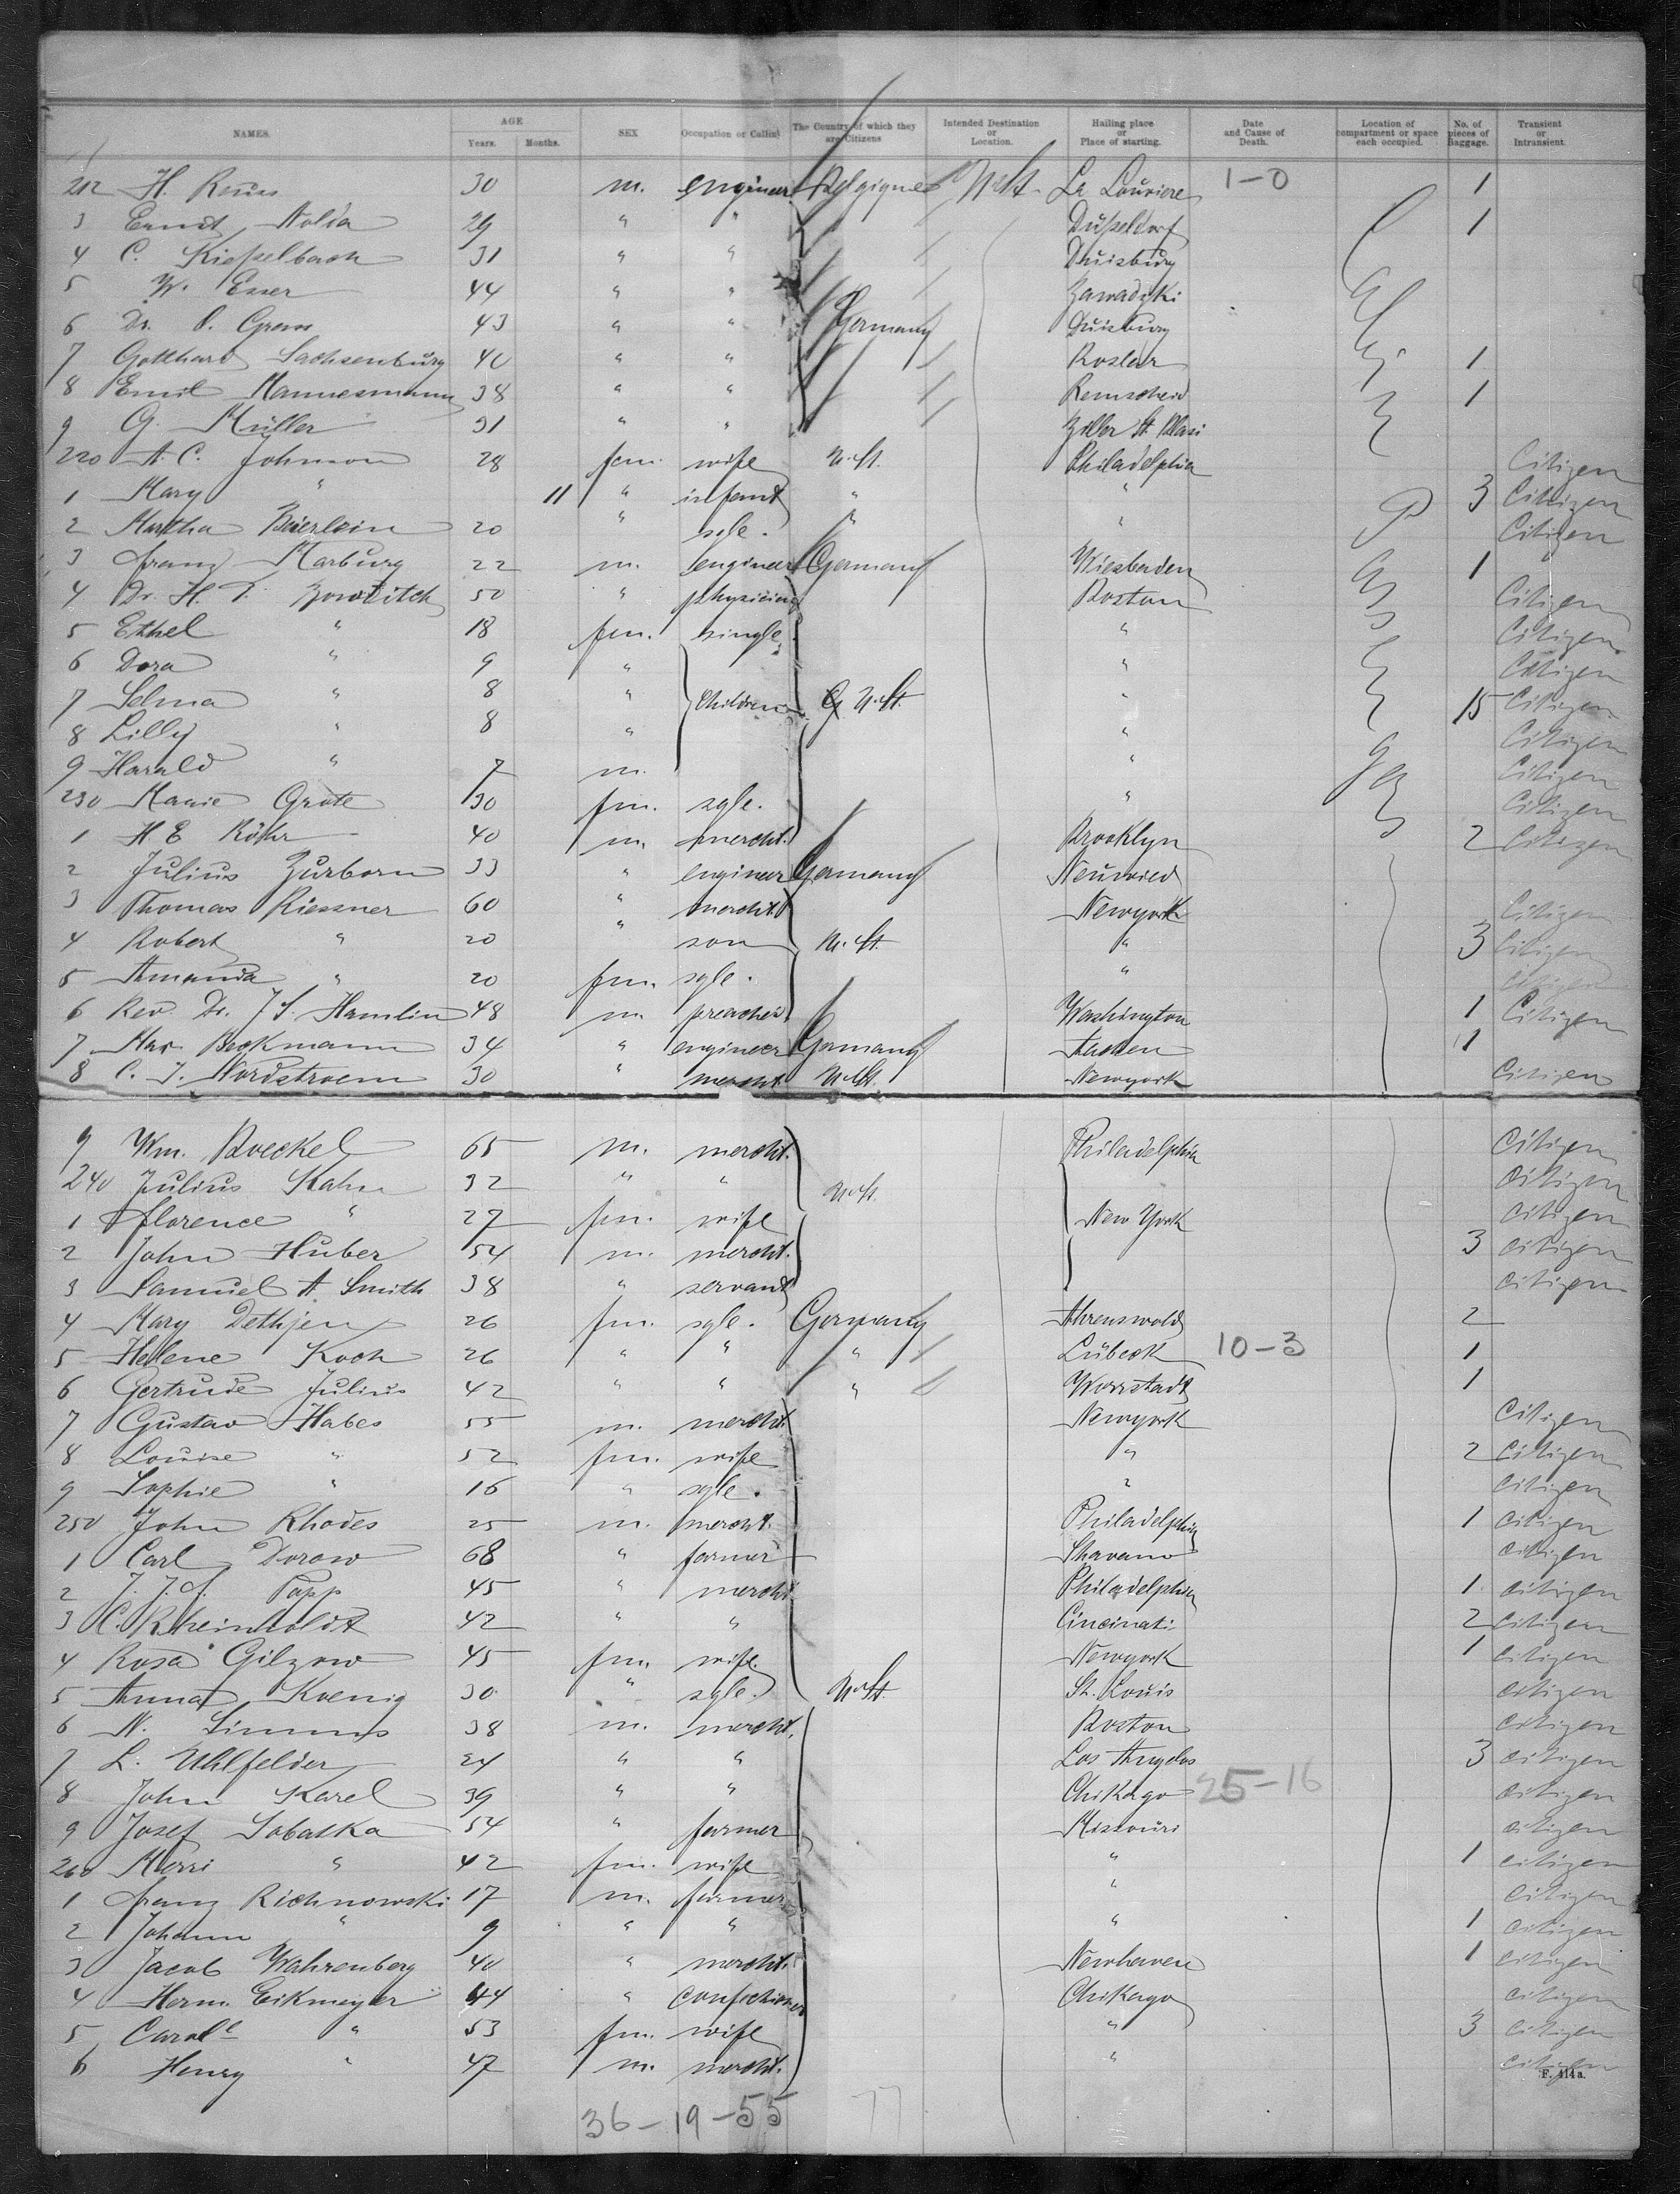 NAMES. AGE Years. Months. SEX Occupation or Calling The Country of which they are Citizens Intended Destination or Location. Hailing place or Place of starting. Date and Cause of Death. Location of compartment or space each occupied. No. of pieces of Baggage. Transient or Intransient.
212 H. 30 m. engineer Belgique U.St. La Louviere 1-0 1
3 Ernst 29 " " Düsseldorf 1
4 C. Kiesselbach 31 " " Duisburg
5 W. Esser 44 " " Zawadzki
6 Dr. O. 43 " " Germany Duisburg
7 Gotthard Sachsenburg 40 " " Roslau 1
8 Emil Mannesmann 38 " " Remscheid 1
9 G. Müller 31 " " St. Blasi
220 A. C. Johnson 28 fem. wife U.St. Philadelphia Citizen
1 Mary " 11 " infant " " 3 Citizen
2 Martha Bäerlein 20 " sgle. " " Citizen
3 Franz Marburg 22 m. engineer Germany Wiesbaden 1
4 Dr. H. 50 " physician Boston Citizen
5 Ethel " 18 fm. single " Citizen
6 Dora " 9 " " Citizen
7 Selma " 8 " Children U.St. " 15 Citizen
8 Lilly " 8 " " Citizen
9 Harald " 7 m. " Citizen
230 Marie Grote 30 fm. sgle. " Citizen
1 H E Röhr 40 m. mercht. Brooklyn 2 Citizen
2 Julius Zurborn 33 " engineer Germany Neuwied
3 Thomas Kiessner 60 " mercht. Newyork Citizen
4 Robert " 20 " son U.St. " 3 Citizen
5 Amanda " 20 fm. sgle. " Citizen
6 Rev. Dr. J S. Hamlin 48 m. preacher Washington 1 Citizen
7 Max Beckmann 34 " engineer Germany Aachen 1
8 C. J. Nordstroem 30 " mercht. U.St. Newyork Citizen
9 Wm. Boeckel 65 m. mercht. Philadelphia Citizen
240 Julius Kahn 32 " " U.St. Citizen
1 Florence " 27 fm. wife New York Citizen
2 John Huber 54 m. mercht. 3 Citizen
3 Samuel A. Smith 38 " servant Citizen
4 Mary Dethjen 26 fm. sgle. Germany Ahrenswold 2
5 Helene Koch 26 " " " Lübeck 10-3 1
6 Gertrude Julius 42 " " " Worrstadt 1
7 Gustav Habes 55 m. mercht. Newyork Citizen
8 Louise " 52 fm. wife " 2 Citizen
9 Sophie " 16 " sgle. " Citizen
250 John Rhodes 25 m. mercht. Philadelphia 1 Citizen
1 Carl Dorow 68 " farmer Shavano Citizen
2 J. J. Papp 45 " mercht. Philadelphia 1 Citizen
3 C. Rheinboldt 42 " " Cincinati 2 Citizen
4 Rosa Gilzow 45 fm. wife Newyork 1 Citizen
5 Anna Koenig 30 " sgle. U.St. St. Louis Citizen
6 N. Simms 38 m. mercht. Boston Citizen
7 L. Uhlfelder 24 " " Los Angelos 3 Citizen
8 John Karel 39 " " Chikago 25-16 Citizen
9 Josef Sobatka 54 " farmer Missouri Citizen
260 " 42 fm. wife " 1 Citizen
1 Franz Richnowski 17 m. farmer " Citizen
2 Johann " 9 " " " 1 Citizen
3 Jacob Wahrenberg 40 " mercht. Newhaven 1 Citizen
4 Herm. Eikmeyer 44 " confectioner Chikago Citizen
5 Carole " 53 fm. wife " 3 Citizen
6 Henry " 47 m. mercht. " Citizen
F. 414 a.
36-19-55 77